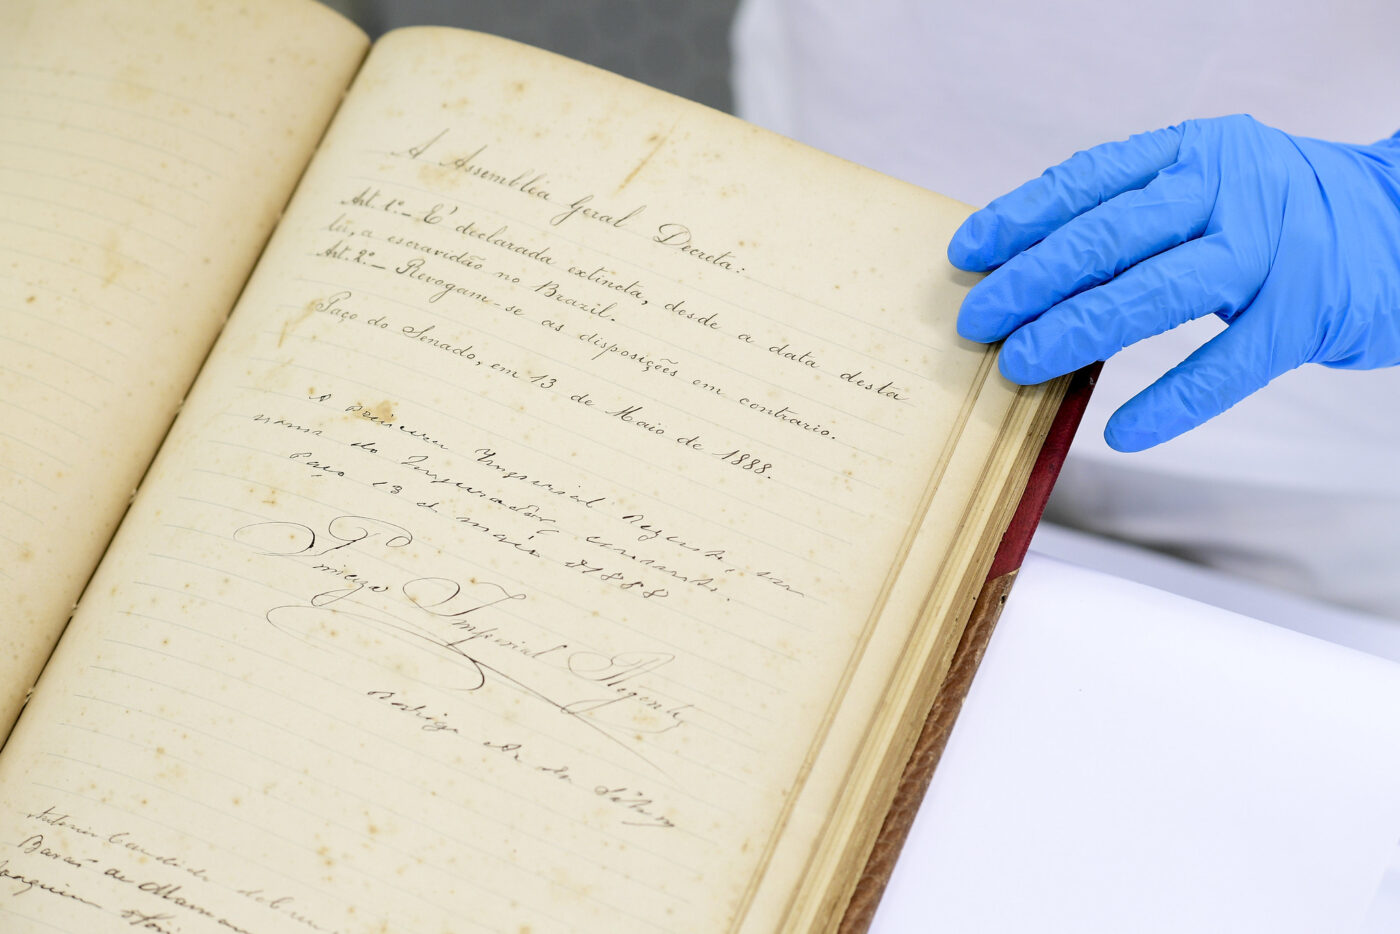 A Assembléa Geral Decreta:
Art. 1.º – E' declarada extincta, desde a data desta
lei, a escravidão no Brazil.
Art. 2.º – Revogam-se as disposições em contrario.
Paço do Senado, em 13 de Maio de 1888.
A Princeza Imperial Regente, em
nome do Imperador, consente.
Paço 13 de maio de 1888
Princeza Imperial Regente
Rodrigo A. da Silva
Antonio Candido
Barão de
Joaquim